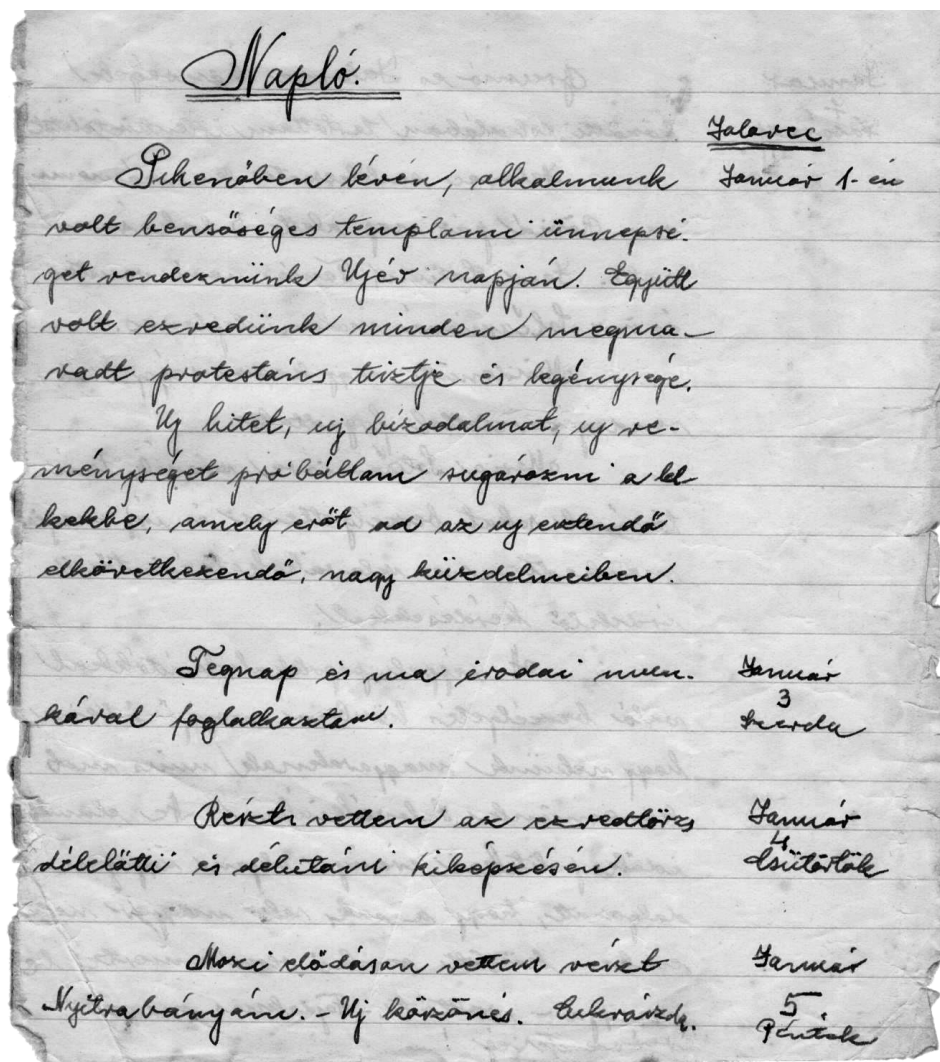 Napló.
Jalovec
Pihenőben lévén, alkalmunk Január 1-én
volt bensőséges templomi ünnepsé-
get rendeznünk Ujév napján. Együtt
volt ezredünk minden megma-
radt protestáns tisztje és legénysége.
Uj hitet, uj bizodalmat, uj re-
ménységet próbáltam sugározni a lel
kekbe, amely erőt ad az uj esztendő
elkövetkezendő, nagy küzdelmeiben.
Tegnap és ma irodai mun- Január
3
kával foglalkoztam. Szerda
Részt vettem az ezredtörzs Január
4
délelőtti és délutáni kiképzésén. Csütörtök
Mozi előadáson vettem részt Január
5
Nyitrabányán. - Uj körzönés. Cukrászda. Péntek